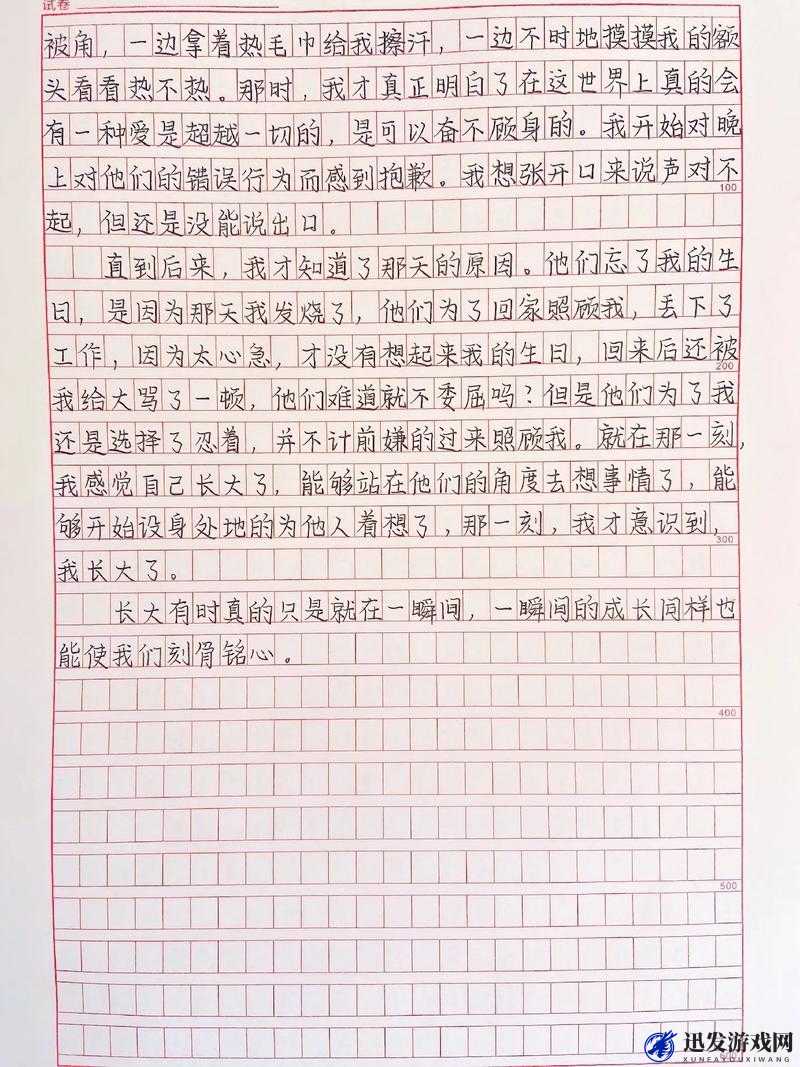 试卷
被角，一边拿着热毛巾给我擦汗，一边不时地摸摸我的额
头看看热不热。那时，我才真正明白了在这世界上真的会
有一种爱是超越一切的，是可以奋不顾身的。我开始对晚
上对他们的错误行为而感到抱歉。我想张开口来说声对不
100
起，但还是没能说出口。
直到后来，我才知道了那天的原因。他们忘了我的生
日，是因为那天我发烧了，他们为了回家照顾我，丢下了
工作，因为太心急，才没有想起来我的生日，回来后还被
200
我给大骂了一顿，他们难道就不委屈吗？但是他们为了我
还是选择了忍着，并不计前嫌的过来照顾我。就在那一刻，
我感觉自己长大了，能够站在他们的角度去想事情了，能
够开始设身处地的为他人着想了，那一刻，我才意识到，
300
我长大了。
长大有时真的只是就在一瞬间，一瞬间的成长同样也
能使我们刻骨铭心。
400
500
迅发游戏网
XUNFAYOUXIWANG